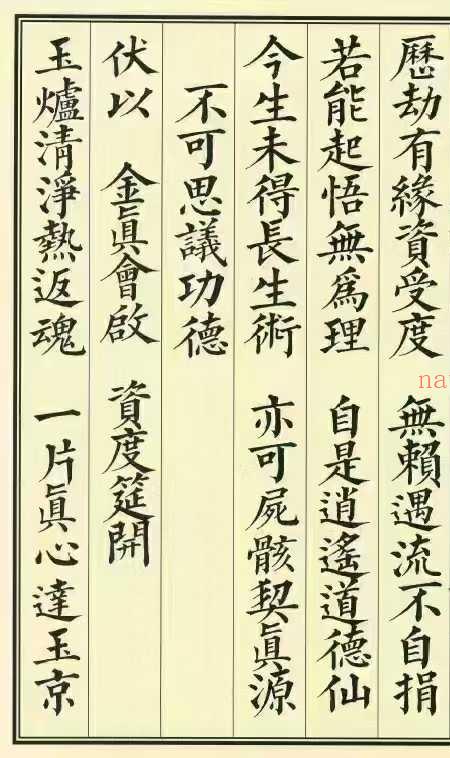 歷劫有緣資受度　無賴遇流不自捐
若能起悟無爲理　自是逍遙道德仙
今生未得長生術　亦可屍骸契眞源
不可思議功德
伏以　金眞會啟　資度筵開
玉爐清淨熱返魂　一片眞心達玉京
na